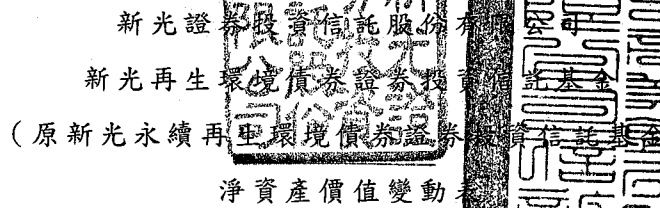 新光證券投資信託股份有限公司
新光再生環境債券證券投資信託基金
（原新光永續再生環境債券證券投資信託基金
淨資產價值變動表